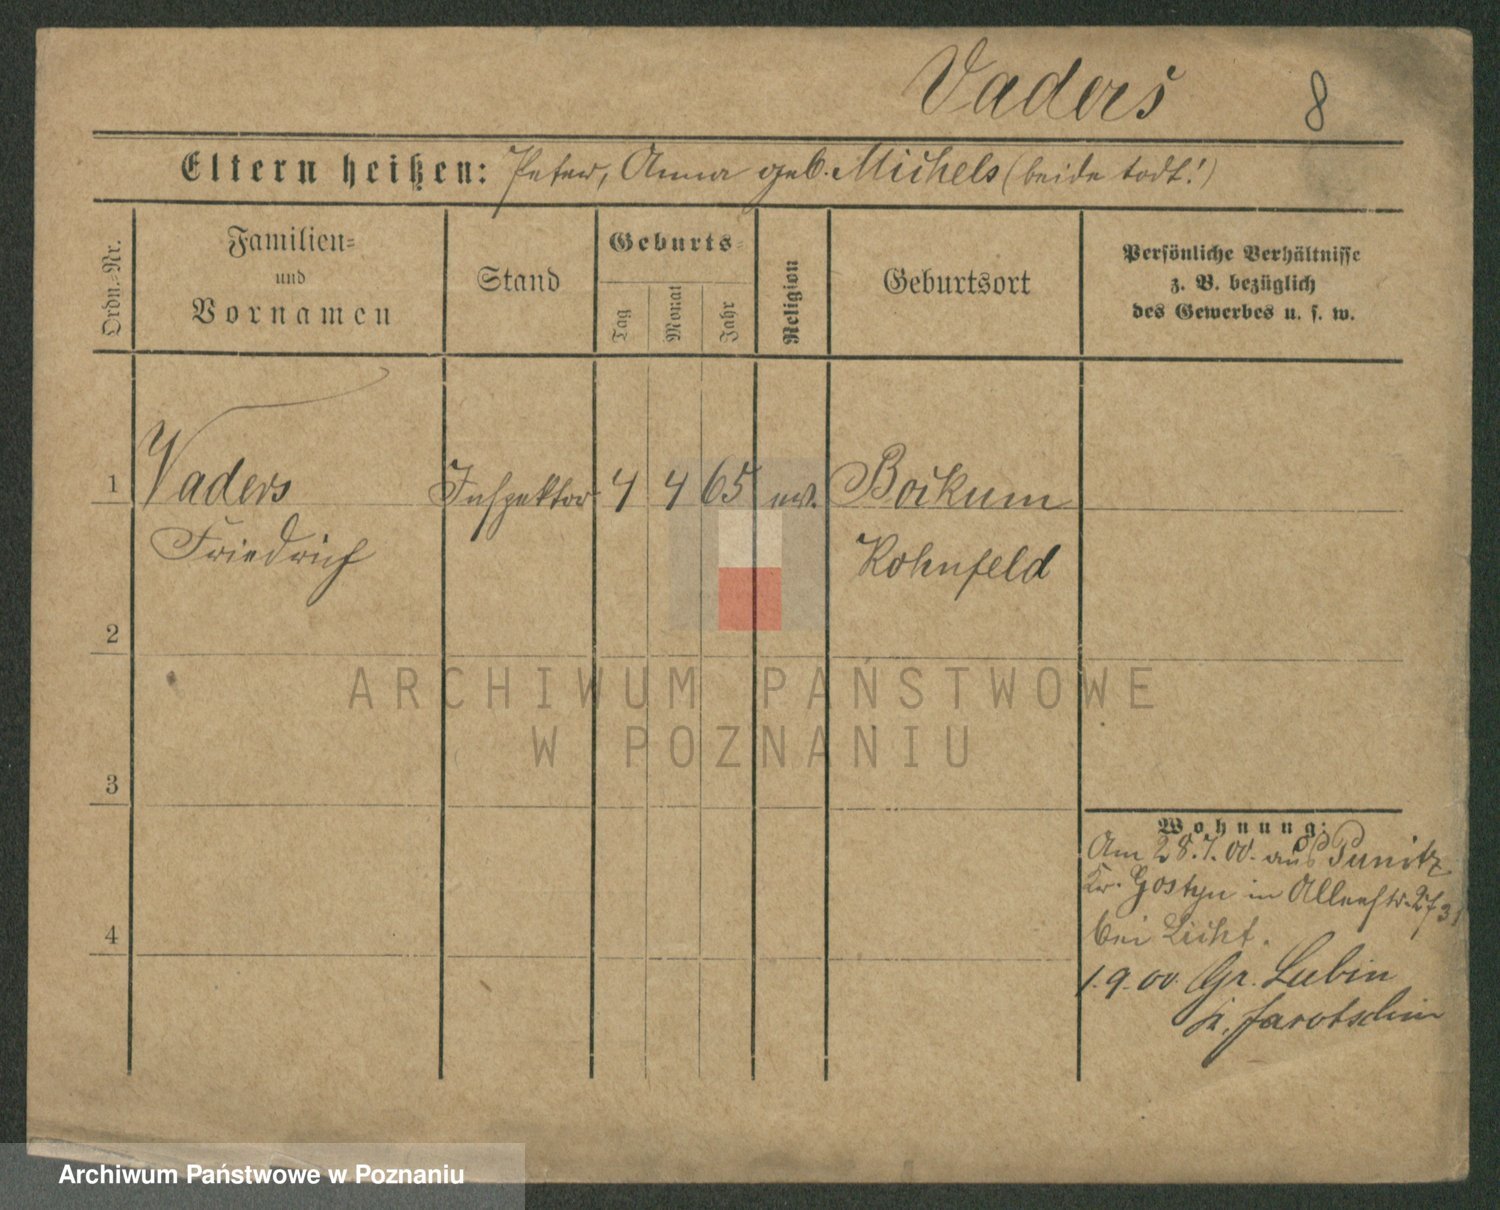 Vaders 8
Eltern heißen: Peter, Anna geb. Michels (beide todt!)
Ordn.-Nr.
Familien-
und
Vornamen
Stand
Geburts-
Tag
Monat
Jahr
Religion
Geburtsort
Persönliche Verhältnisse
z. B. bezüglich
des Gewerbes u. s. w.
1 Vaders Inspektor 4 4 65 ev. Bockum
Friedrich Kohnfeld
2
3
4
ARCHIWUM PAŃSTWOWE
W POZNANIU
Wohnung:
Am 28.7.00. aus Punitz
Kr. Gostyn in
bei Licht.
1.9.00. Gr. Lubin
K. Jarotschin
Archiwum Państwowe w Poznaniu